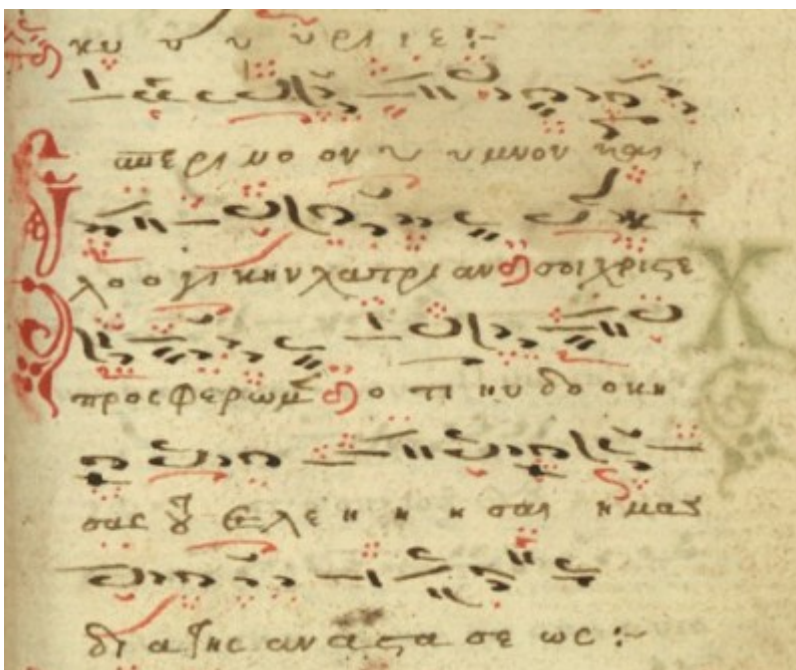 κυ υ υ υ ρι ι ε :-
εσπε ρι νο ον υ υμνον και
λο ο γι κην λατρι αν σοι χριϛε
προσφερωμ ο τι ηυ δο οκη
σας ȣ ελε η η η σαι ημας
δι α της αν α ϛα σε ως :-